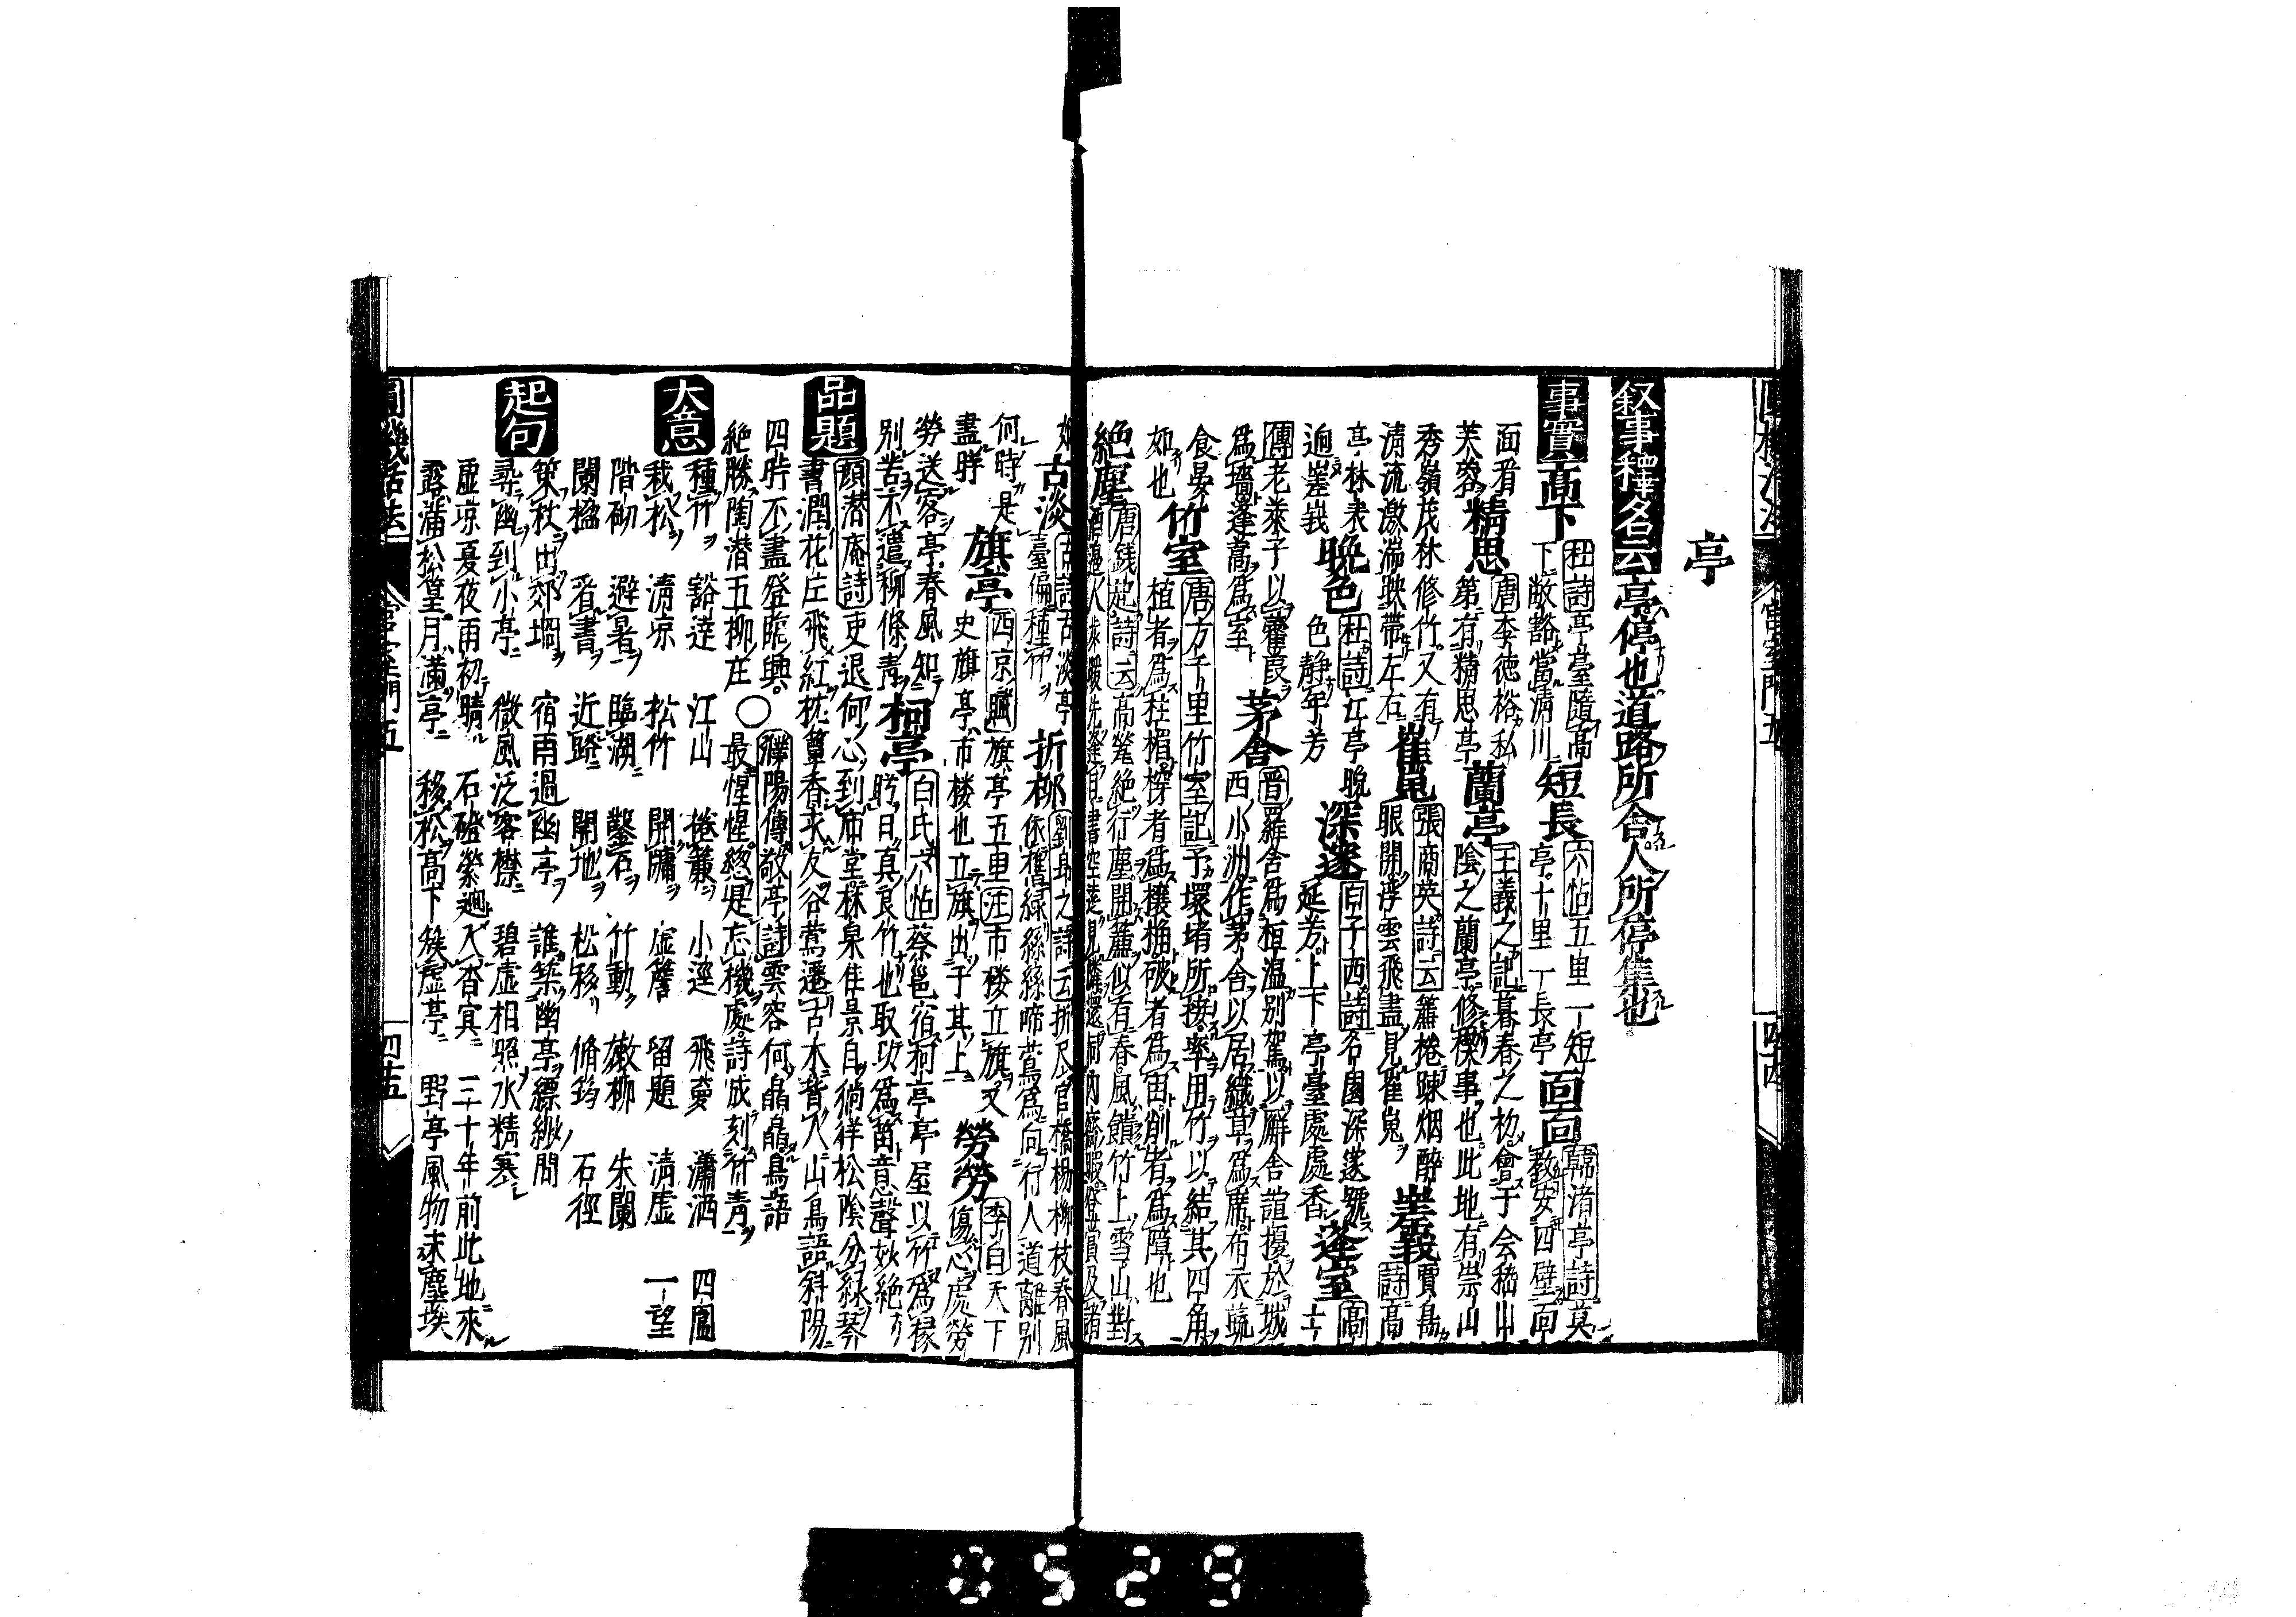 亭
叙事 釋名云亭停也道路所舍人所停集也
事實 高下 杜詩亭臺隨高
下敞豁當清川 短長 六帖五里一短
亭十里一長亭 面面 韓渚亭詩莫
教安四壁面
面看 精思 唐李德裕私
第有精思亭 蘭亭 王羲之記暮春之初會于会稽山
陰之蘭亭修禊事也此地有崇山
秀嶺茂林修竹又有
清流激湍映帶左右 崔嵬 張商英詩云簾捲疎烟醉
眼開浮雲飛盡見崔嵬 賈島
詩高
亭林表
逈嵳峩 晩色 杜詩江亭晩
色靜年芳 深邃 白子西詩名園深邃號
延芳上下亭臺處處香 蓬室 高士
傳老莱子以藿葭
爲墻蓬蒿爲室 茅舍 晋羅含爲桓温别駕以廨舍諠擾於城
西小洲作茅舍以居織草爲席布衣蔬
食晏
如也 竹室 唐方千里竹室記予環堵所接率用竹以結其四角
植者爲柱楣榜者爲欀桷破者爲宙削者爲障也
絶塵 唐錢起詩云高筵絶行塵開簾似有春風饋竹上雪山對
古淡 古詩古淡亭
臺偏種竹 折柳 劉
之詩云折尽官橋楊柳枝春風
依舊緑絲絲啼鴬爲向行人道離别
何時是
盡時 旗亭 西京賦旗亭五里注市楼立旗又
史旗亭市楼也立旗出于其上 勞勞 李白天下
傷心處勞
勞送客亭春風知
别苦不遣柳條青 柯亭 白氏六帖蔡邕宿柯亭亭屋以竹爲椽
眝曰真良竹也取以爲笛音聲妙絶
品題 顔潜庵詩吏退何心到庙堂林泉佳景自徜徉松陰分緑琴
書潤花庄飛紅枕簟香求友谷鴬遷古木背人山鳥語斜陽
四時不盡登臨興 濮陽傳敬亭詩雲容何皛皛鳥語
絶勝陶潜五柳庄○最惺惺總是忘機處詩成刻竹青
大意 種竹 豁達 江山 捲簾 小逕 飛夢 瀟洒 四圍
栽松 清凉 松竹 開牖 虚簷 留題 清虚 一望
階砌 避暑 臨湖 鑿石 竹動 嫩柳 朱闌
闌楹 看書 近路 開地 松移 脩筠 石徑
起句 策杖出郊坰 宿雨過幽亭 誰築幽亭縹緲間
尋幽到小亭 微風泛客襟 碧虚相照水精寒
虚凉夏夜雨初晴 石磴縈廻入杳冥 三十年前此地來
露滿松篁月滿亭 移松高下簇虚亭 野亭風物未塵埃
圓機活法 宮室門五 四十五
0529